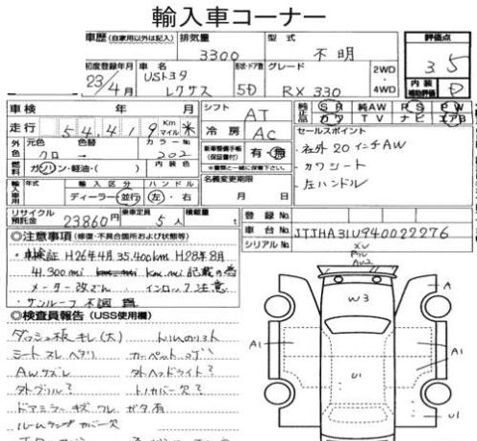 輸入車コーナー
車歴 (自家用以外は記入) 排気量 3300 型式 不明 評価点 3.5
初度登録年月 23/4月 車名 USトヨタ レクサス 形状・ドア数 5D グレード RX 330 2WD・4WD 内装補助評価 D
車検 年 月 シフト AT 純正品 SR 純AW PS PW
走行 54,419 Km マイル 冷房 AC カワ TV ナビ エアB
外色 元色 クロ 色替 カラーNo. 202 内装色 新車整備手帳(保証書付) 有・無 セールスポイント
燃料 ガソリン・軽油・( ) ・社外20インチAW
輸入車用 年式 輸入区分 ディーラー・並行 ハンドル 左・右 名義変更期限 月 日 ・カワシート
・左ハンドル
リサイクル預託金 23860円 乗車定員 5人 積載量 t 登録No.
車台No. JTJHA31U940022276
シリアルNo.
◎注意事項(修復・不具合箇所および状態等)
・車検証 H26年4月 35,400km H28年8月
41,300mi km,mi 記載の為
メーター改ざん インロック注意
・サンルーフ不調
◎検査員報告(USS使用欄)
ダッシュ板キレ(大)
シートスレ ヘタリ カーペット
AWキズ 外ヘッドライト?
外グリル? トノカバー欠?
ドアミラーキズ ワレ ガタ有
ルームランプカバー欠
W3
A
A1
A1
U1
U1